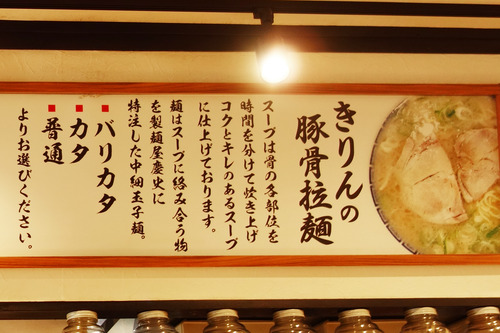 きりんの
豚骨拉麺
スープは骨の各部位を
時間を分けて炊き上げ
コクとキレのあるスープ
に仕上げております。
麺はスープに絡み合う物
を製麺屋慶史に
特注した中細玉子麺。
■バリカタ
■カタ
■普通
よりお選びください。